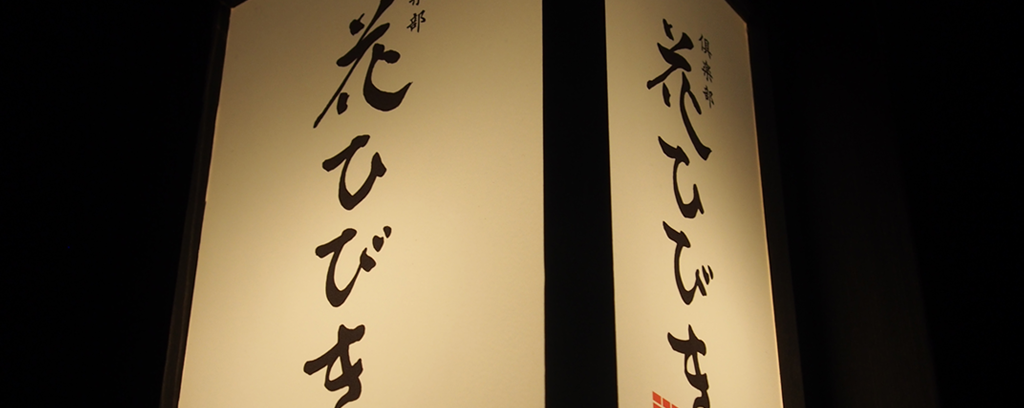 倶楽部
花ひびき
倶楽部
花ひびき